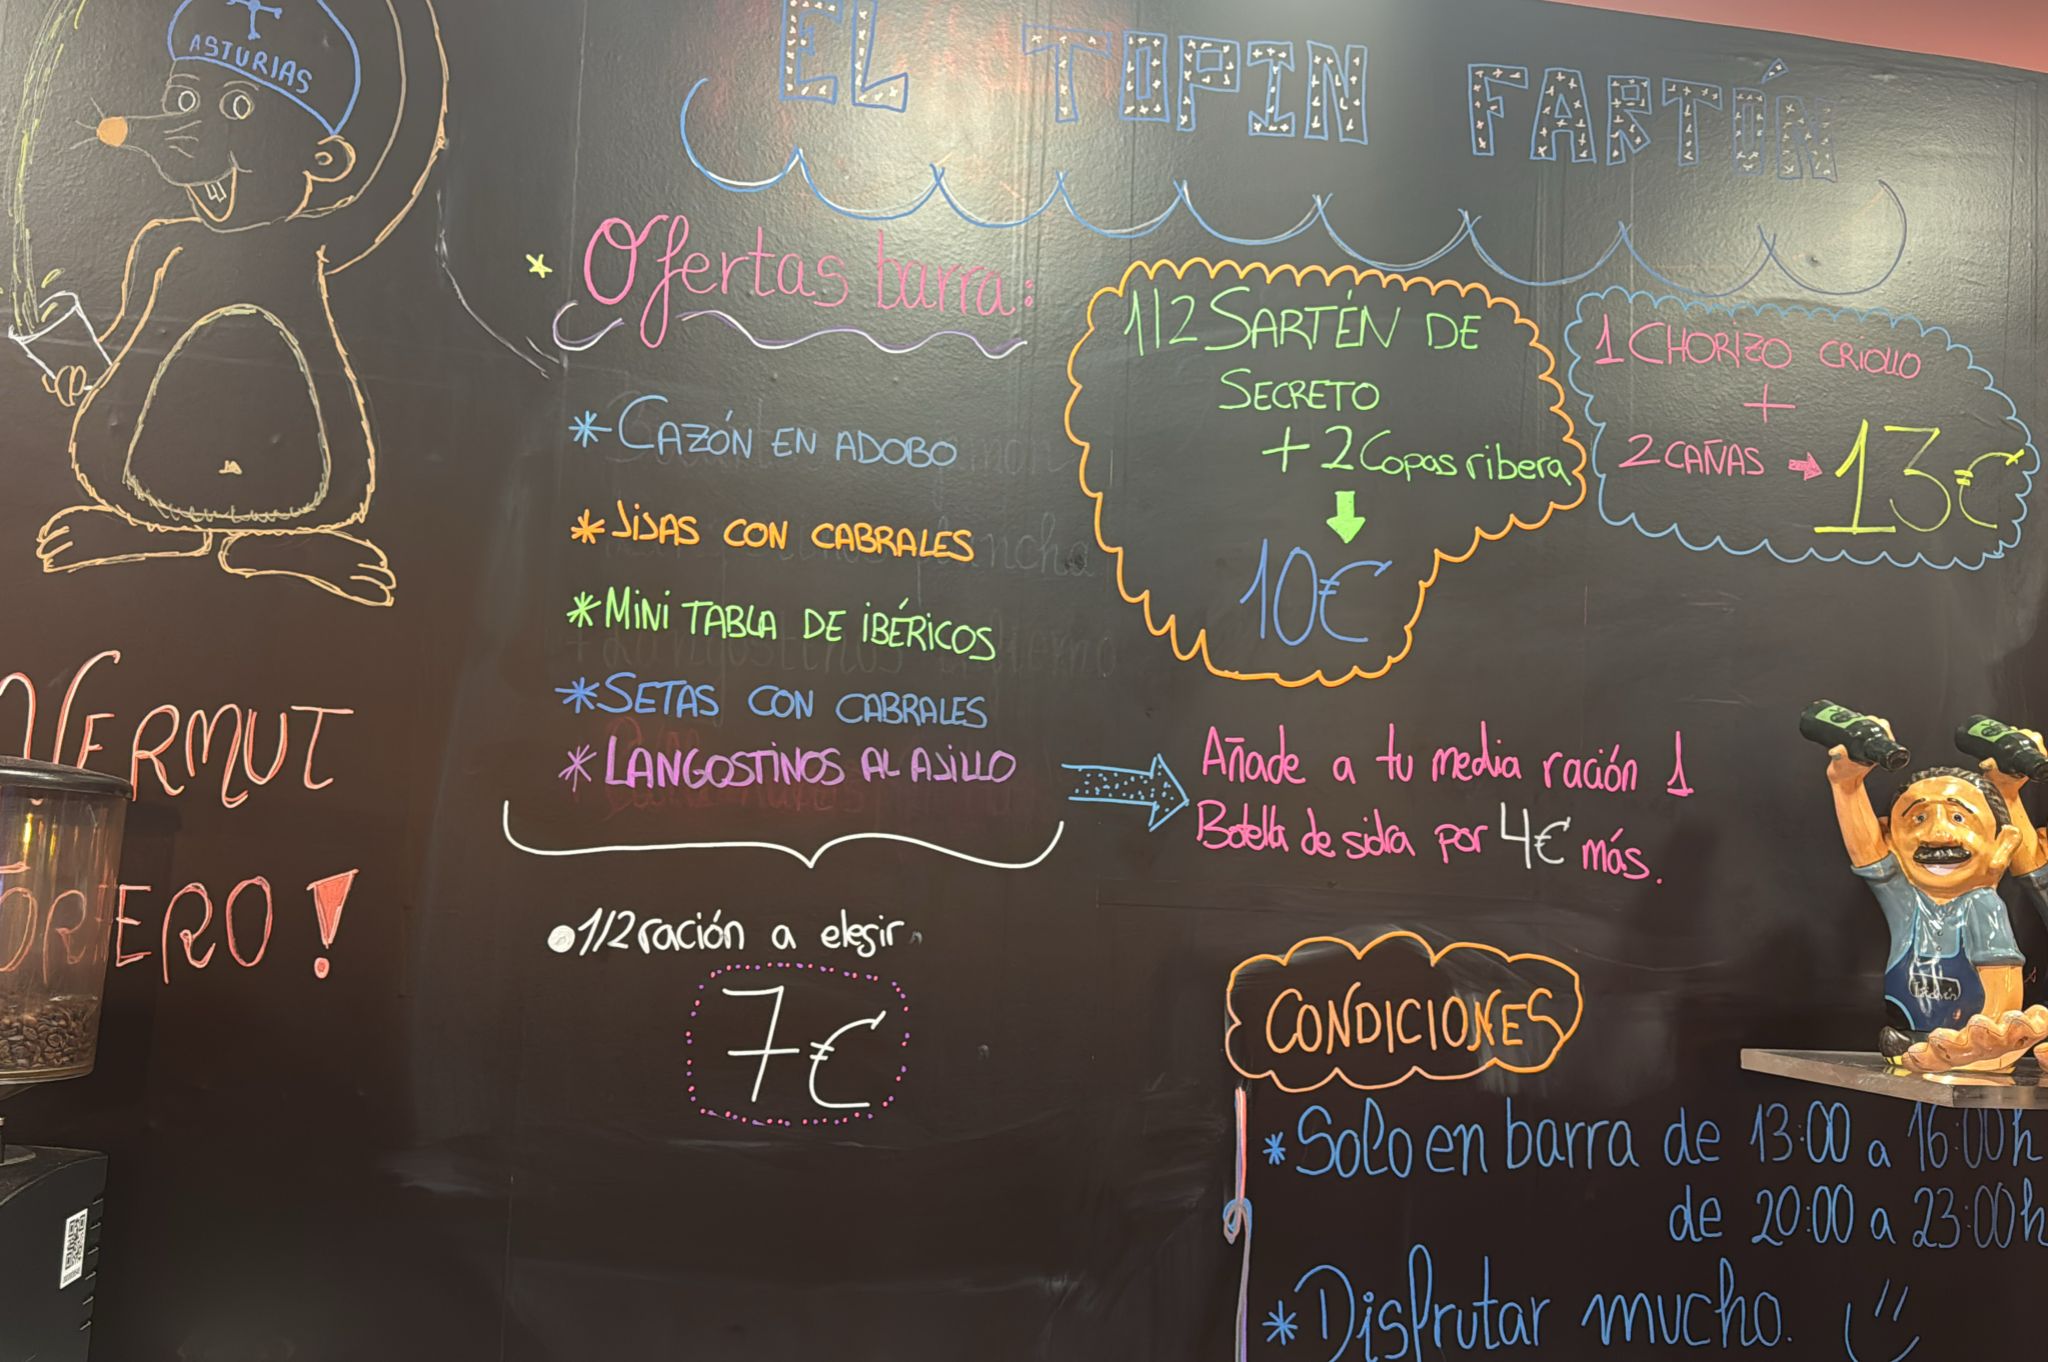 ASTURIAS
EL TOPIN FARTÓN
* Ofertas barra:
* CAZÓN EN ADOBO
* JIJAS CON CABRALES
* MINI TABLA DE IBÉRICOS
* SETAS CON CABRALES
* LANGOSTINOS AL AJILLO
• 1/2 ración a elegir
7€
1/2 SARTÉN DE
SECRETO
+ 2 Copas ribera
10€
1 CHORIZO CRIOLLO
+
2 CAÑAS → 13€
Añade a tu media ración 1
Botella de sidra por 4€ más.
VERMUT
TORERO!
CONDICIONES
* Solo en barra de 13:00 a 16:00h
de 20:00 a 23:00h
* Disfrutar mucho.